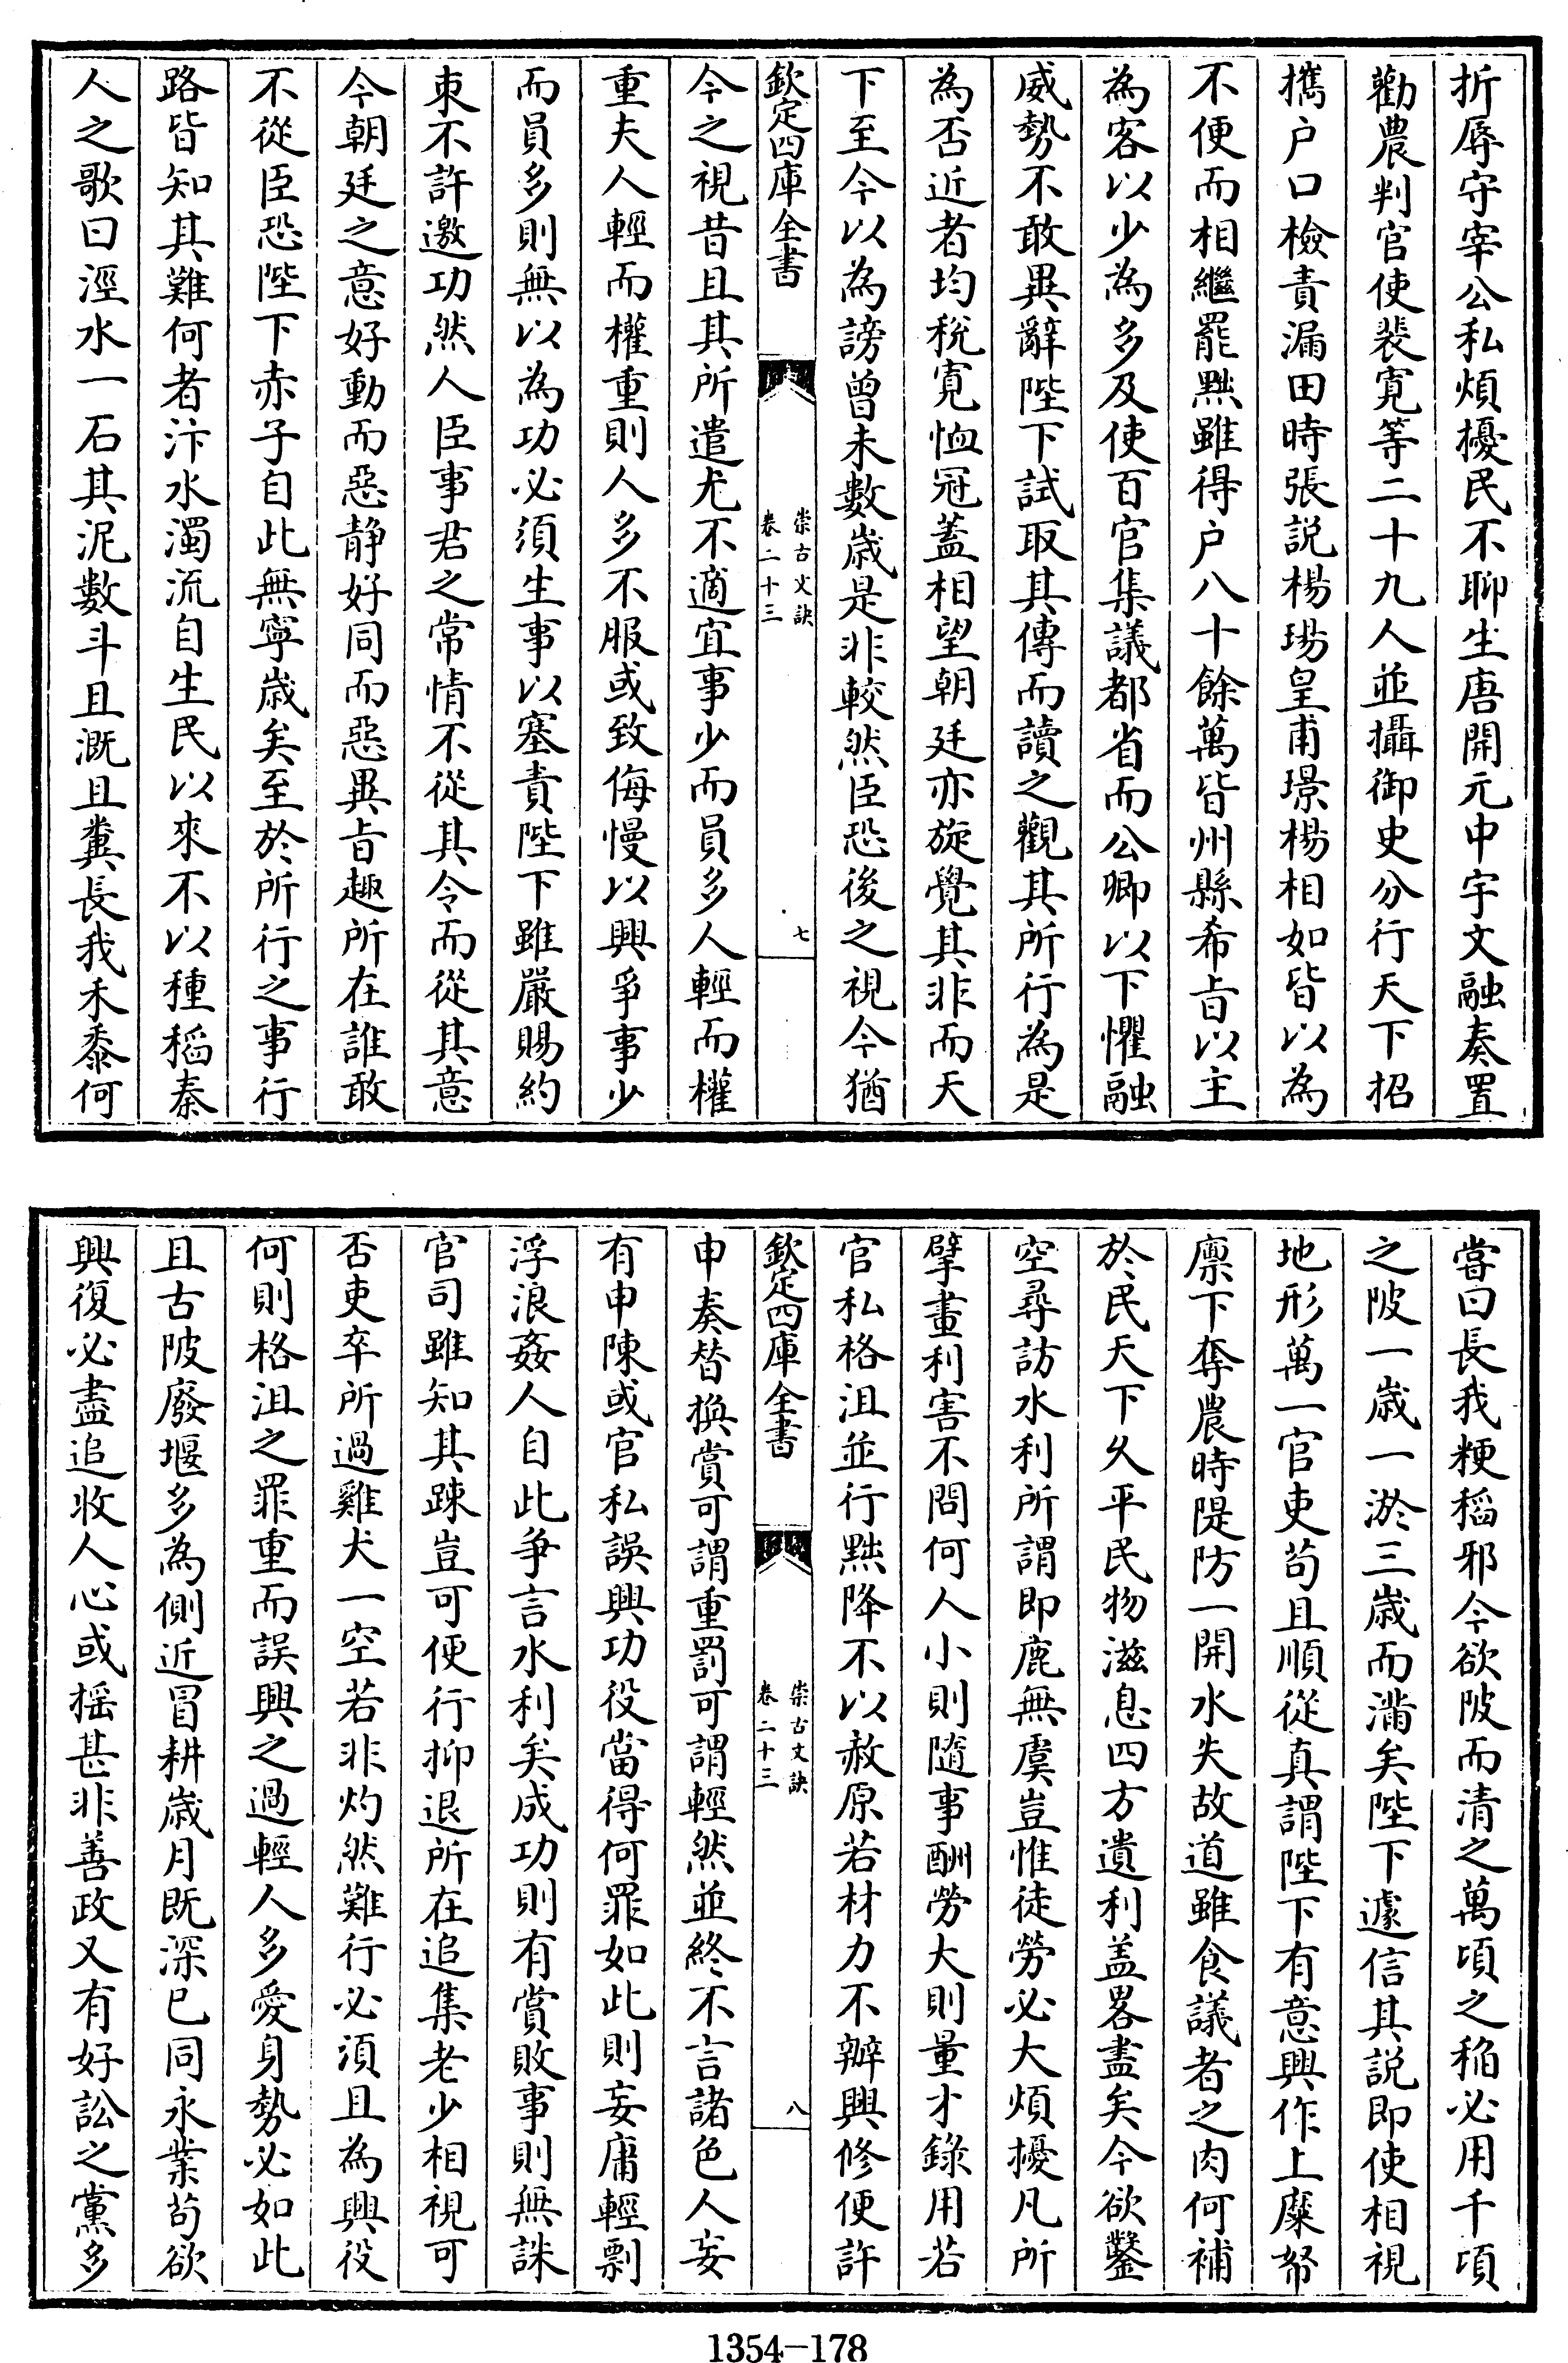 折辱守宰公私煩擾民不聊生唐開元中宇文融奏置
勸農判官使裴寛等二十九人並攝御史分行天下招
攜户口檢責漏田時張説楊瑒皇甫璟楊相如皆以為
不便而相繼罷黜雖得户八十餘萬皆州縣希㫖以主
為客以少為多及使百官集議都省而公卿以下懼融
威勢不敢異辭陛下試取其傳而讀之觀其所行為是
為否近者均税寛恤冠蓋相望朝廷亦旋覺其非而天
下至今以為謗曾未數歲是非較然臣恐後之視今猶
欽定四庫全書
崇古文訣
卷二十三
七
今之視昔且其所遣尤不適宜事少而員多人輕而權
重夫人輕而權重則人多不服或致侮慢以興爭事少
而員多則無以為功必須生事以塞責陛下雖嚴賜約
束不許邀功然人臣事君之常情不從其令而從其意
今朝廷之意好動而惡静好同而惡異㫖趣所在誰敢
不從臣恐陛下赤子自此無寧歲矣至於所行之事行
路皆知其難何者汴水濁流自生民以來不以種稻秦
人之歌曰涇水一石其泥數斗且溉且糞長我禾黍何
嘗曰長我粳稻邪今欲陂而清之萬頃之稲必用千頃
之陂一歲一淤三歲而滿矣陛下遽信其説即使相視
地形萬一官吏苟且順從真謂陛下有意興作上糜帑
廪下奪農時隄防一開水失故道雖食議者之肉何補
於民天下久平民物滋息四方遺利盖畧盡矣今欲鑿
空尋訪水利所謂即鹿無虞豈惟徒勞必大煩擾凡所
擘畫利害不問何人小則隨事酬勞大則量才錄用若
官私格沮並行黜降不以赦原若材力不辦興修便許
欽定四庫全書
崇古文訣
卷二十三
八
申奏替換賞可謂重罰可謂輕然並終不言諸色人妄
有申陳或官私誤興功役當得何罪如此則妄庸輕剽
浮浪姦人自此争言水利矣成功則有賞敗事則無誅
官司雖知其踈豈可便行抑退所在追集老少相視可
否吏卒所過雞犬一空若非灼然難行必須且為興役
何則格沮之罪重而誤興之過輕人多愛身勢必如此
且古陂廢堰多為側近冒耕歲月既深已同永業苟欲
興復必盡追收人心或揺甚非善政又有好訟之黨多
1354-178